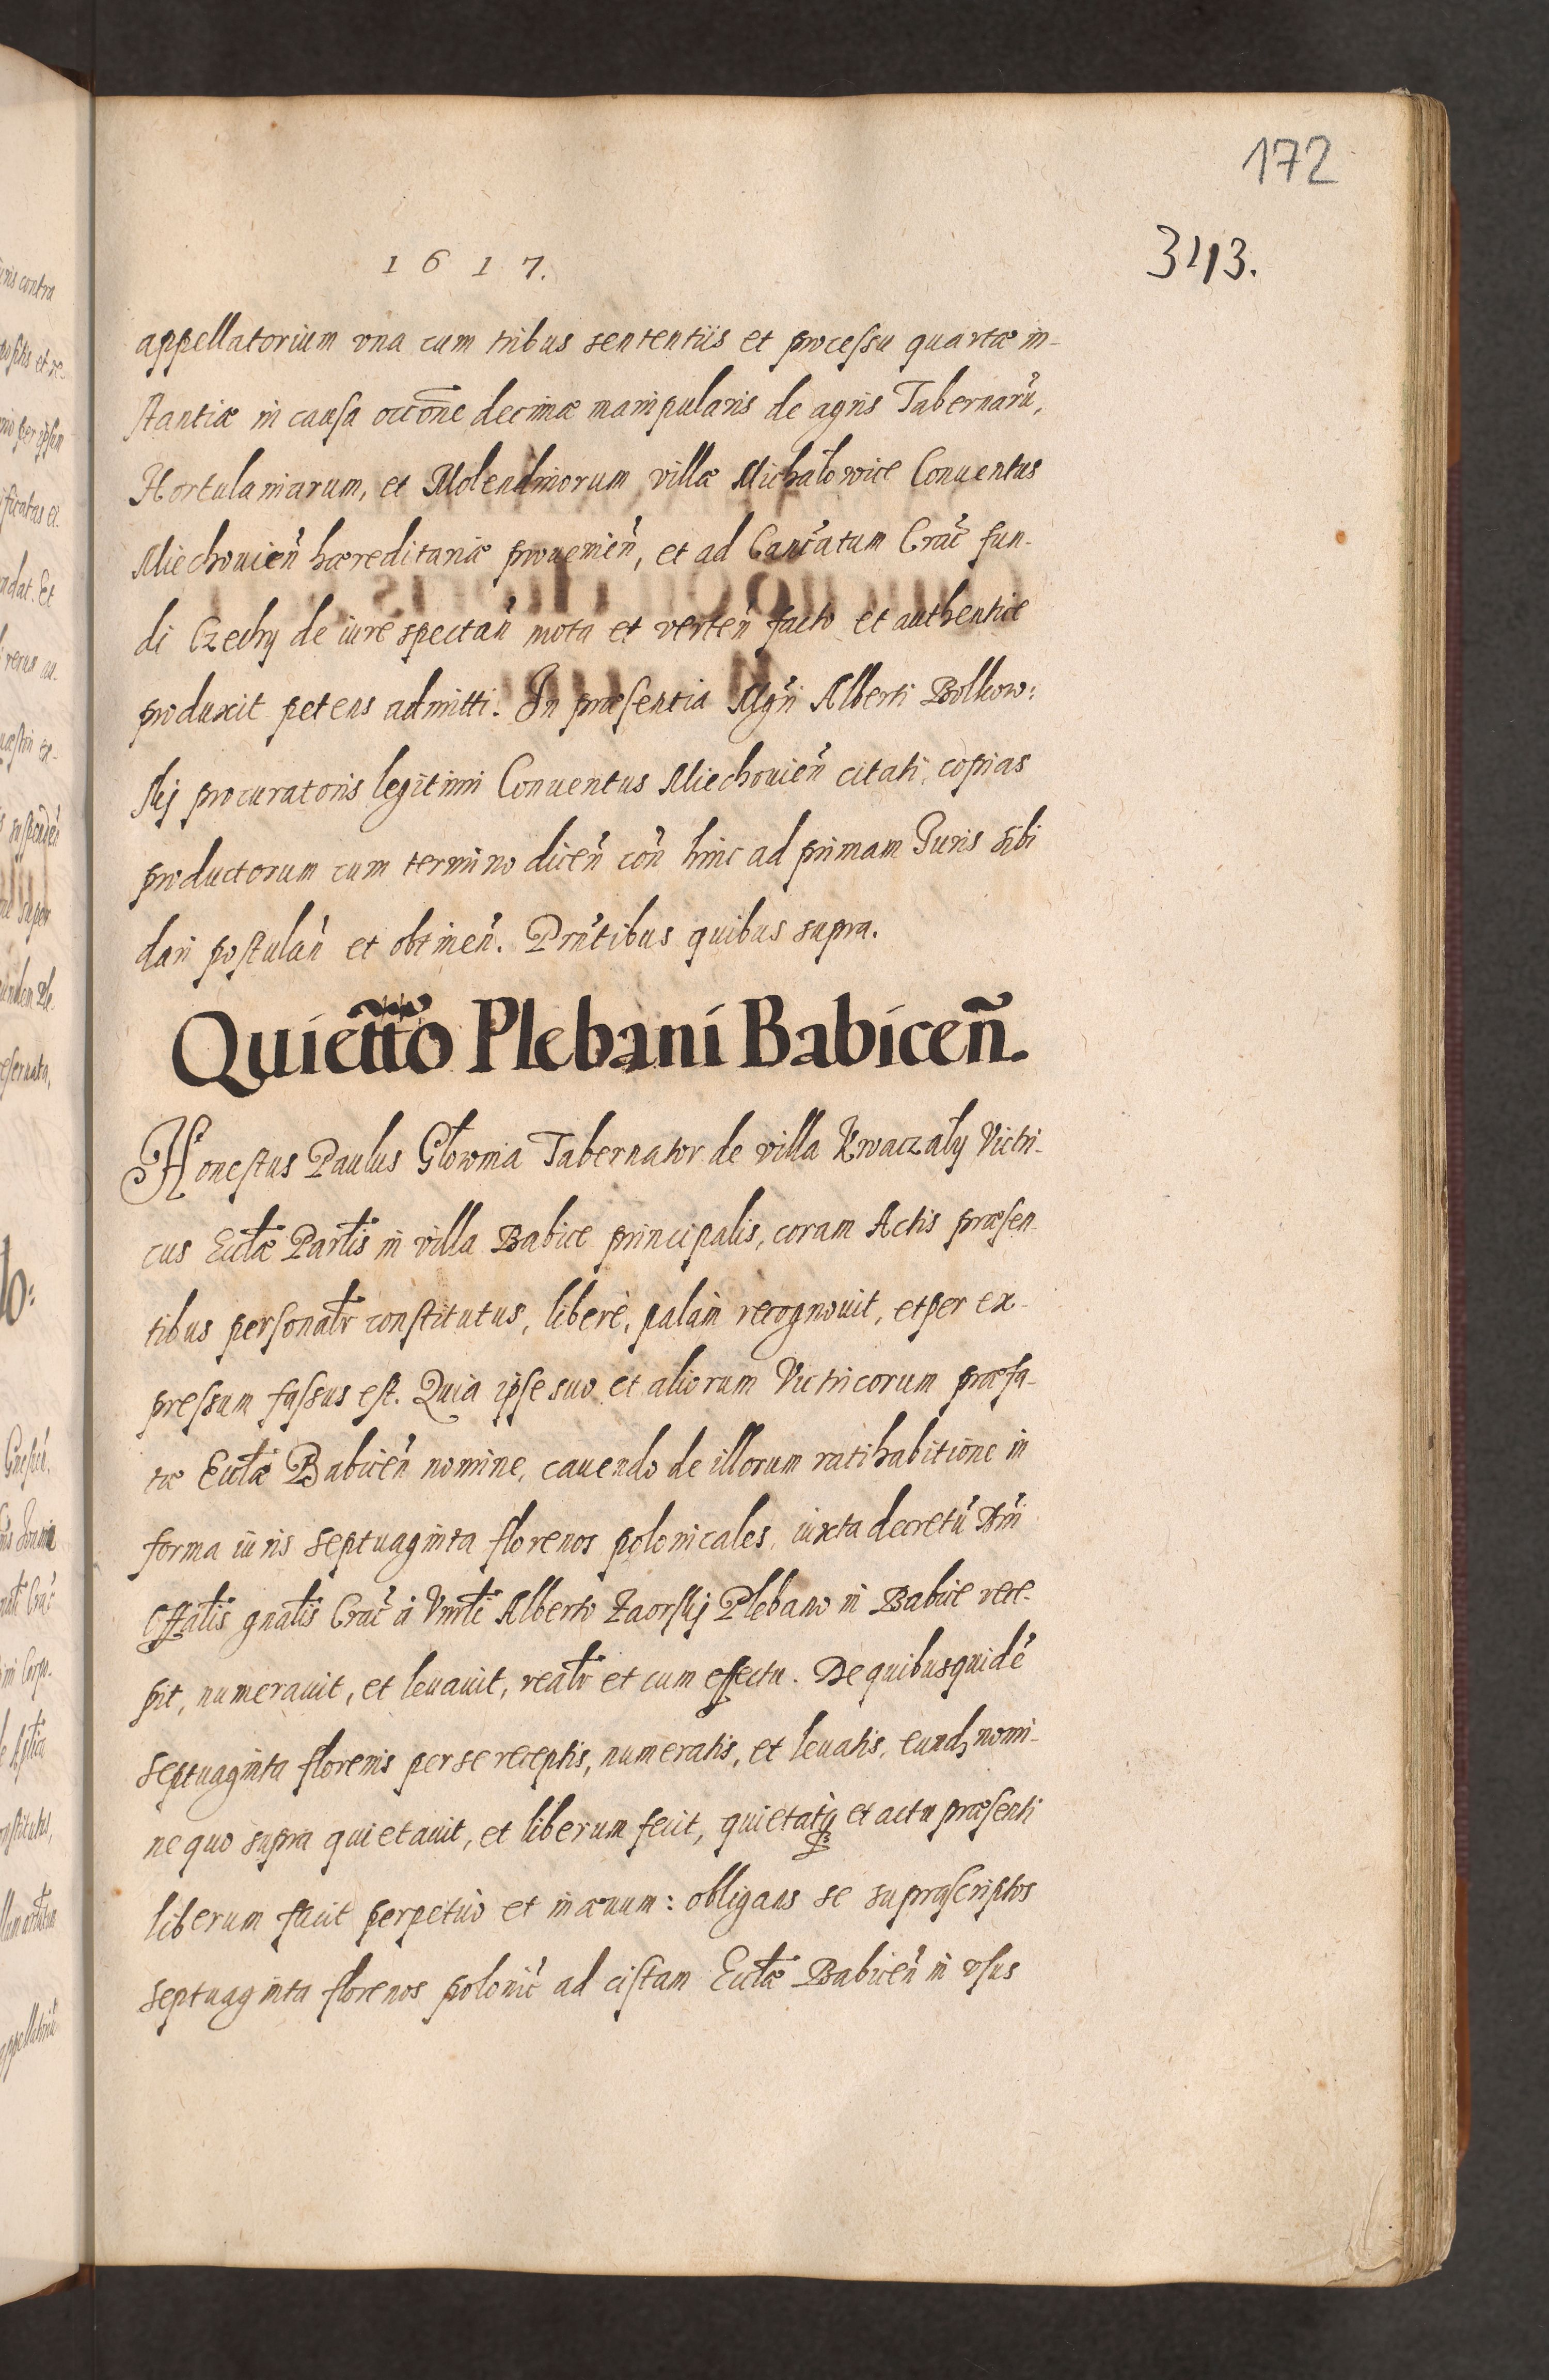 172
343.
1617.
appellatorium vna cum tribus sententiis et processu quartæ in-
stantiæ in causa occõne decimæ manipularis de agris Tabernarũ,
Hortulaniarum, et Molendinorum villæ Michałowice Conuentus
Miechouieñ hæreditariæ proueniẽn, et ad Canĩatum Crac̃ fun-
di Czechy de iure spectañ mota et verteñ facto et authentice
produxit petens admitti. In præsentia Mgñi Alberti Bolkow:
skij procuratoris legitimi Conuentus Miechouieñ citati, copias
productorum cum termino diceñ coñ hinc ad primam Juris sibi
dari postulañ et obtineñ. Prñtibus quibus supra.
Quietto Plebani Babiceñ.
Honestus Paulus Głownia Tabernator de villa Kwaczały Victri-
cus Ecclæ Parłis in villa Babice principalis, coram Actis præsen-
tibus personałr constitutus, liberè, palàm recognouit, et per ex-
pressum fassus est. Quia ipse suo et aliorum Victricorum præfa-
tæ Ecclæ Babiceñ nomine, cauendo de illorum ratihabitione in
forma iuris septuaginta florenos polonicales, iuxta decretũ Dñi
Offałis gnałis Crac̃ à Vnrłi Alberto Zaorskij Plebano in Babice rece-
pit, numerauit, et leuauit, reałr et cum effectu. De quibusquidẽ
septuaginta florenis per se receptis, numeratis, et leuatis, eundꝫ nomi-
ne quo supra quietauit, et liberum fecit, quietatqꝫ et actu præsenti
liberum facit perpetuò et in æuum: obligans se suprascriptos
septuaginta florenos polonic̃ ad cistam Ecclæ Babiceñ in vsus